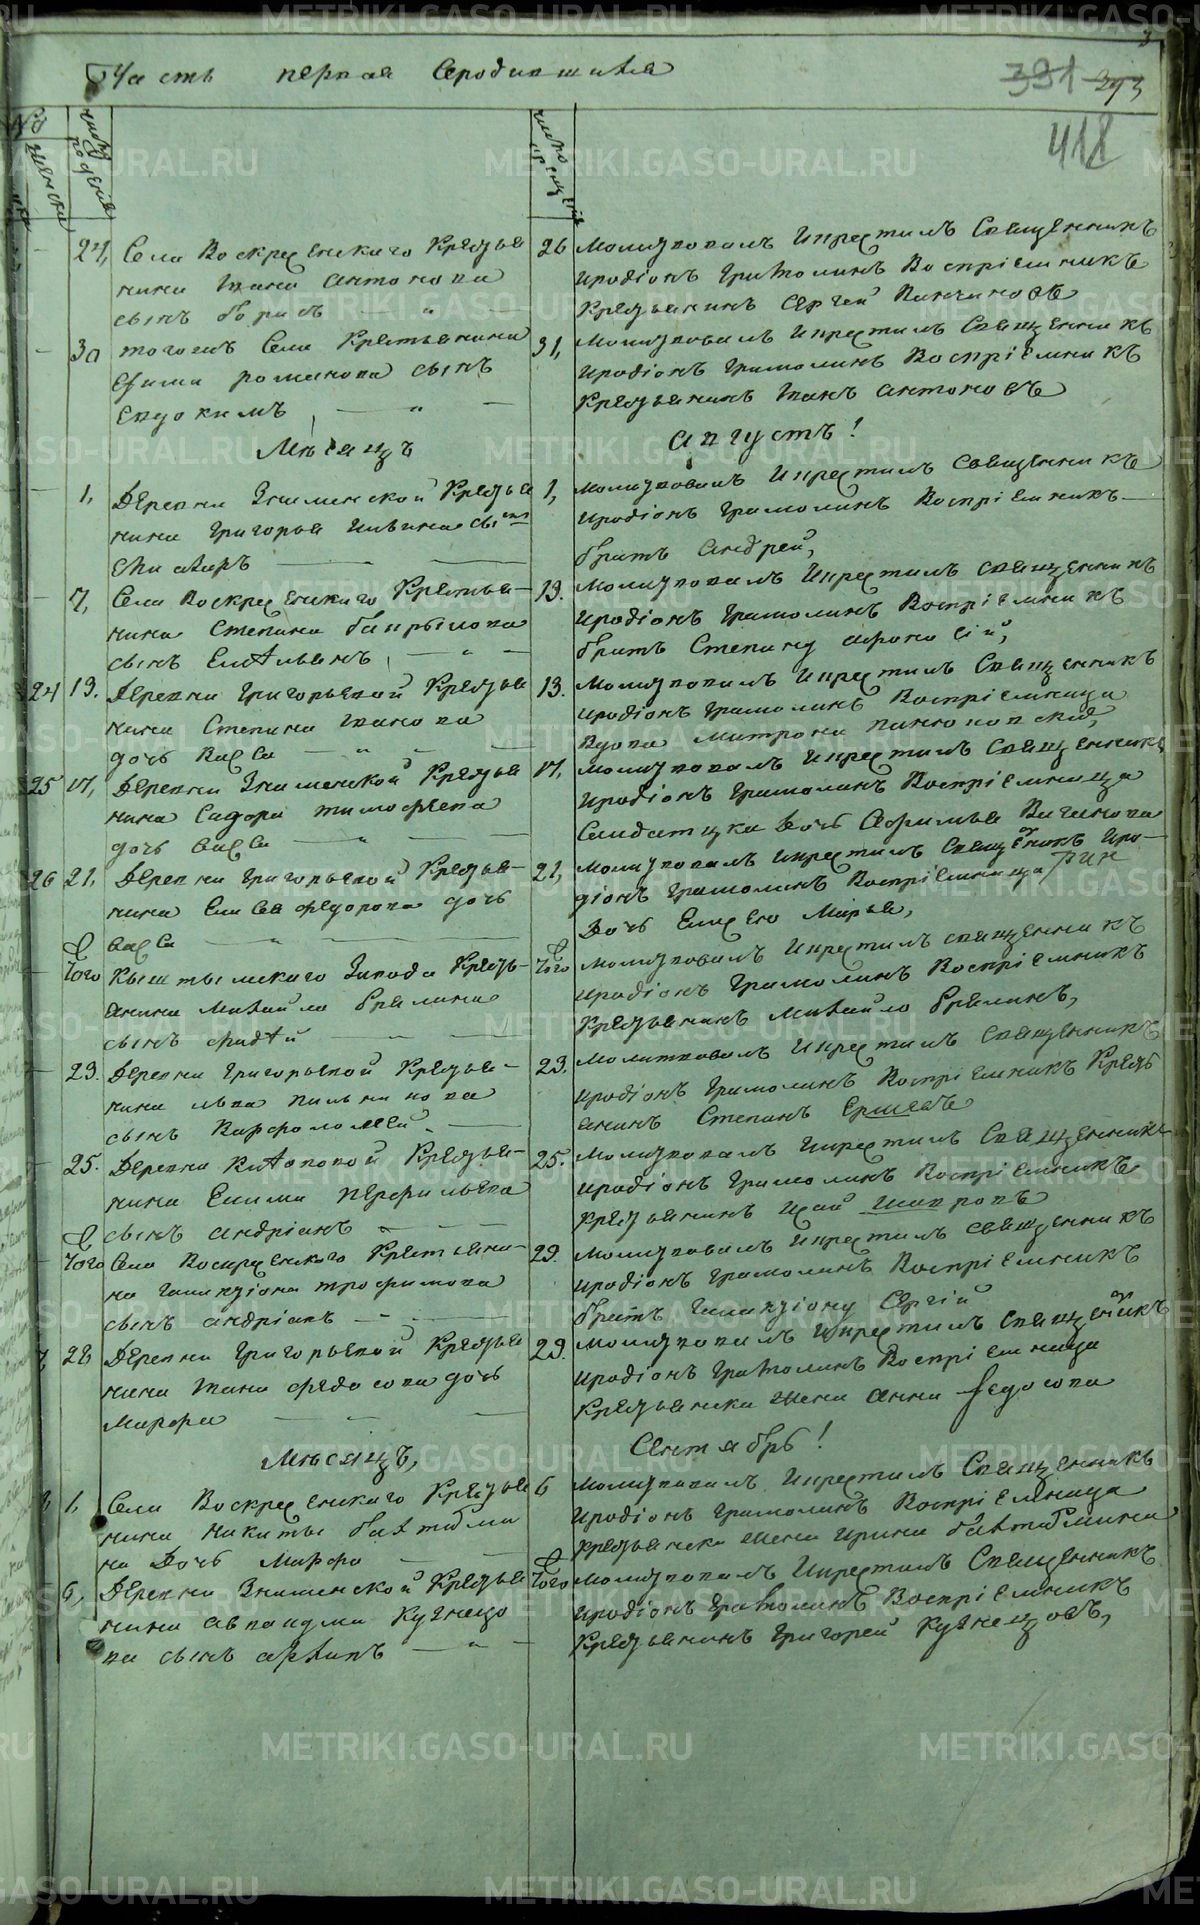 Часть первая О родившихся
391 393
418
№
женска
число рожденія
число крещенія
24, Села Воскресенскаго Крестья
нина Ивана Антонова
сынъ борисъ
26 молитвовалъ и крестилъ Священникъ
Иродіонъ Грамолинъ Воспріемникъ
Крестьянинъ Сергей
30 тогожъ Села Крестьянина
Ефима романова сынъ
Евдокимъ
31, молитвовалъ и крестилъ Священникъ
Иродіонъ Грамолинъ Воспріемникъ
Крестьянинъ Иванъ Антоновъ
Мѣсяцъ
Августъ!
1, Деревни Знаменской Крестья
нина Григорья Ильина сынъ
1, молитвовалъ и крестилъ Священникъ
Иродіонъ Грамолинъ Воспріемникъ
братъ Андрей,
7, Села Воскресенскаго Крестья-
нина Степана
сынъ Емельянъ
13. молитвовалъ и крестилъ священникъ
Иродіонъ Грамолинъ Воспріемникъ
братъ Степану Афонасій,
24 13. Деревни Григорьевой Крестья
нина Степана Иванова
дочь Васса
13. молитвовалъ и крестилъ Священникъ
Иродіонъ Грамолинъ Воспріемница
Вдова Матрона
25 17, Деревни Знаменской Крестья
нина Сидора тимофеева
дочь Васса
17, молитвовалъ и крестилъ Священникъ
Иродіонъ Грамолинъ Воспріемница
Салдатская дочь Афимья
26 21, Деревни Григорьевой Крестья-
нина Елисея федорова дочь
Васса
21, молитвовалъ и крестилъ Священникъ Иро-
діонъ Грамолинъ Воспріемница
Дочь Елисею Марья,
Того Кыштымскаго Завода Кресть-
янина Михайло брелина
сынъ фадей
Того молитвовалъ и крестилъ священникъ
Иродіонъ Грамолинъ Воспріемникъ
Крестьянинъ Михайло брелинъ,
23. Деревни Григорьевой Крестья-
нина льва
сынъ Варфоломей
23. молитвовалъ и крестилъ Священникъ
Иродіонъ Грамолинъ Воспріемникъ Кресть
янинъ Степанъ Ершевъ
25. Деревни Крестья-
нина Екима перфильева
сынъ андріанъ
25. молитвовалъ и крестилъ Священникъ
Иродіонъ Грамолинъ Воспріемникъ
Крестьянинъ Исай
Того Села Воскресенскаго Крестьяни-
на Галактіона трофимова
сынъ андріанъ
29. молитвовалъ и крестилъ священникъ
Иродіонъ Грамолинъ Воспріемникъ
братъ Галактіону Сергій
28 Деревни Григорьевой Крестья
нина Ивана федосова дочь
Марфа
29. молитвовалъ и крестилъ Священникъ
Иродіонъ Грамолинъ Воспріемница
Крестьянска жена Анна федосова
Мѣсяцъ,
Сентябрь!
1, Села Воскресенскаго Крестья
нина Никиты бахтарми
на Дочь Марфа
6 молитвовалъ и крестилъ Священникъ
Иродіонъ Грамолинъ Воспріемница
Крестьянска жена Ирина
6, Деревни Знаменской Крестья
нина Авакума Кузнецо
ва сынъ архипъ
Того молитвовалъ и крестилъ Священникъ
Иродіонъ Грамолинъ Воспріемникъ
Крестьянинъ Григорей Кузнецовъ,
METRIKI.GASO-URAL.RU